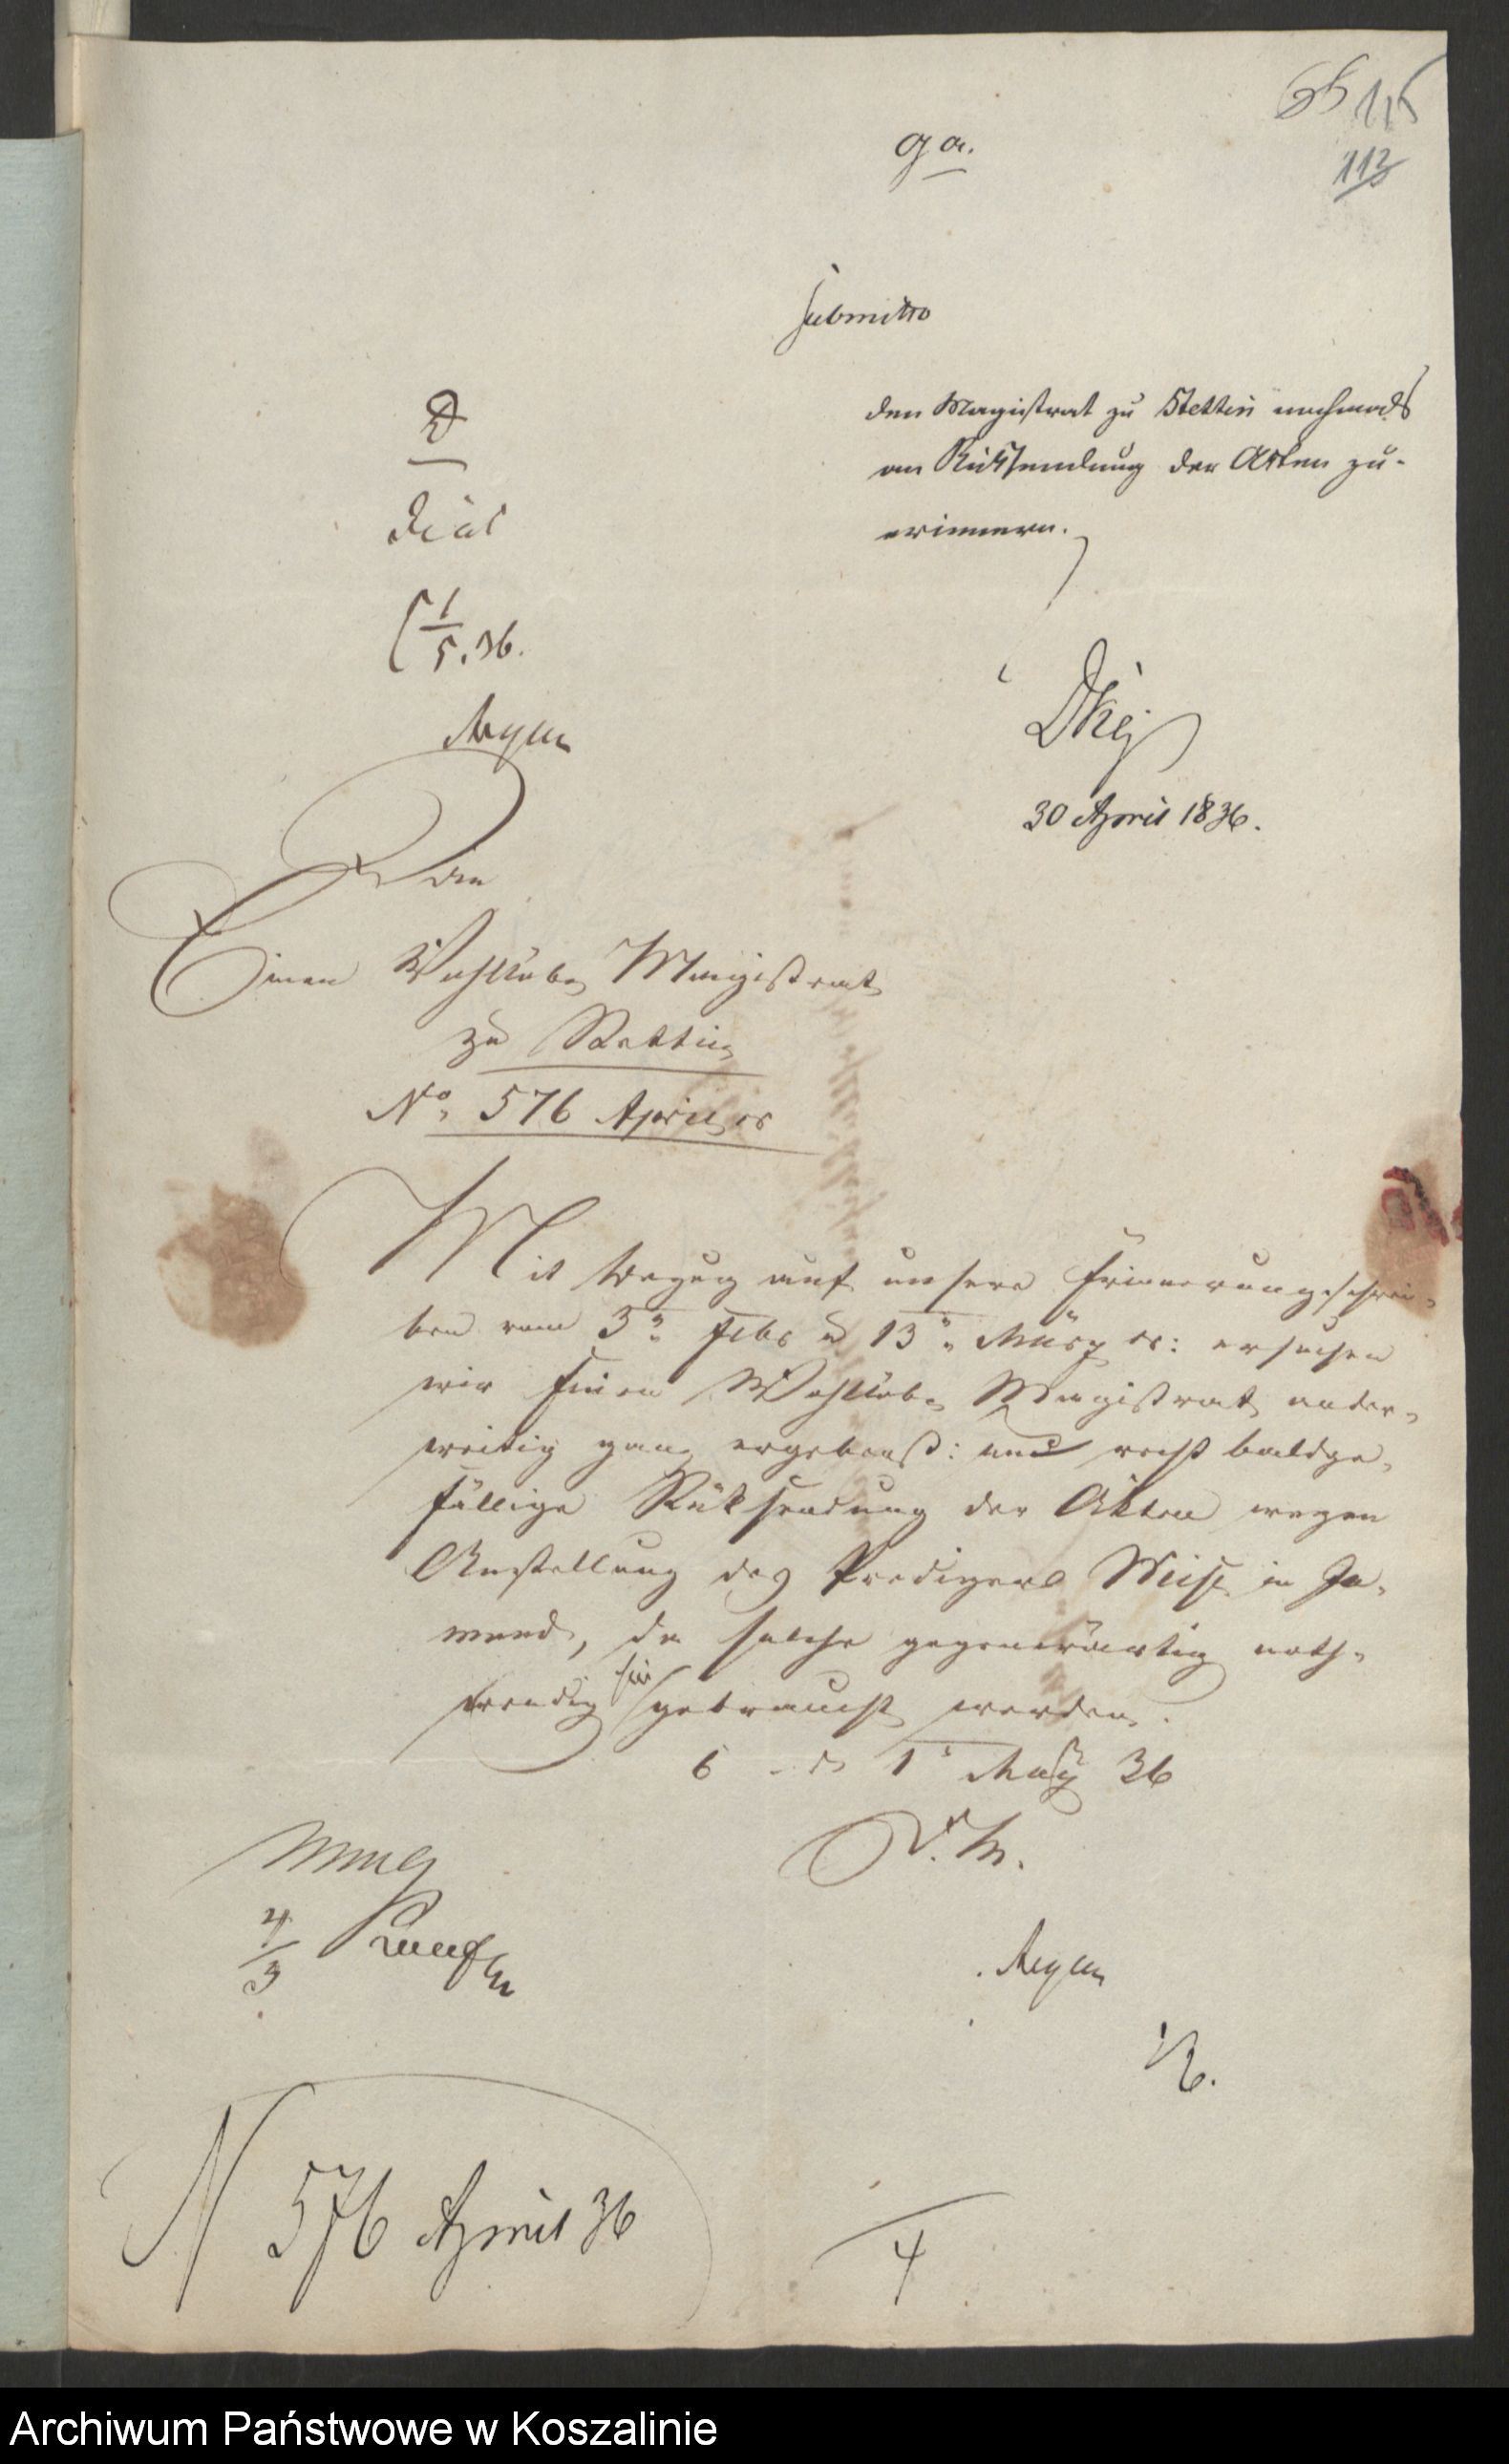 65 115
113
g a.
submitto
den Magistrat zu Stettin nochmals
an Rücksendung der Akten zu-
erinnern.
D
fiat
1/5. 36.
30 April 1836.
An
Einen Wohllöbn Magistrat
zu Stettin
No. 576 April cr
Mit Bezug auf unsere Erinnerungsschrei-
ben vom 3n Febr u 13n März cr: ersuchen
wir Einen Wohllöbn Magistrat ander-
weitig ganz ergebenst: um recht baldge-
fällige Rüksendung der Akten wegen
Anstellung des Predigers in Ja-
mund, da solche gegenwärtig noth-
wendig hier gebraucht werden.
1 May 36
D. M.
4/5
N 576 April 36
4
Archiwum Państwowe w Koszalinie